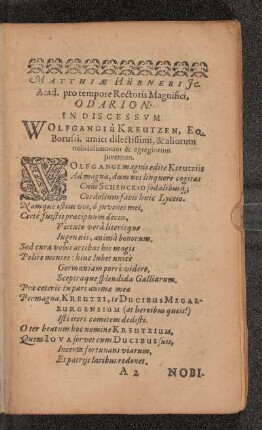 MATTHIÆ HÜBNERI Jc.
Acad. pro tempore Rectoris Magnifici,
ODARION:
IN DISCESSVM
WOLFGANGI â KREUTZEN, EQ.
Borussi, amici dilectissimi, & aliorum
nobilissimorum & egregiorum
juvenum.
WOLFGANGE magnis edite Kreutziis
Ad magna, dum nos linquere cogitas
Cum SCHENCKIO sodalibusq́,
Cordolium facis huic Lyceio.
Namque istius vos, ô juvenes mei,
Certè fuistis præcipuum decus,
Virtute verâ literisque
Ingenuis, animâ bonorum.
Sed cura vobis artibus hic magis
Polire mentes: hinc lubet unice
Germaniam porrò videre,
Sceptraque splendida Galliarum.
Præ ceteris tu pars animæ meæ
Permagna, KREUTZI, ir DUCIBUS MEGAL-
BURGENSIUM (at heroibus queis!)
Isti iters comitem dedisti.
O ter beatum hoc nomine KREUTZIUM,
Quem JOVA servet cum DUCIBUS suis,
Incerta fortunans viarum,
Et patriis laribus redonet.
A 2 NOBI-